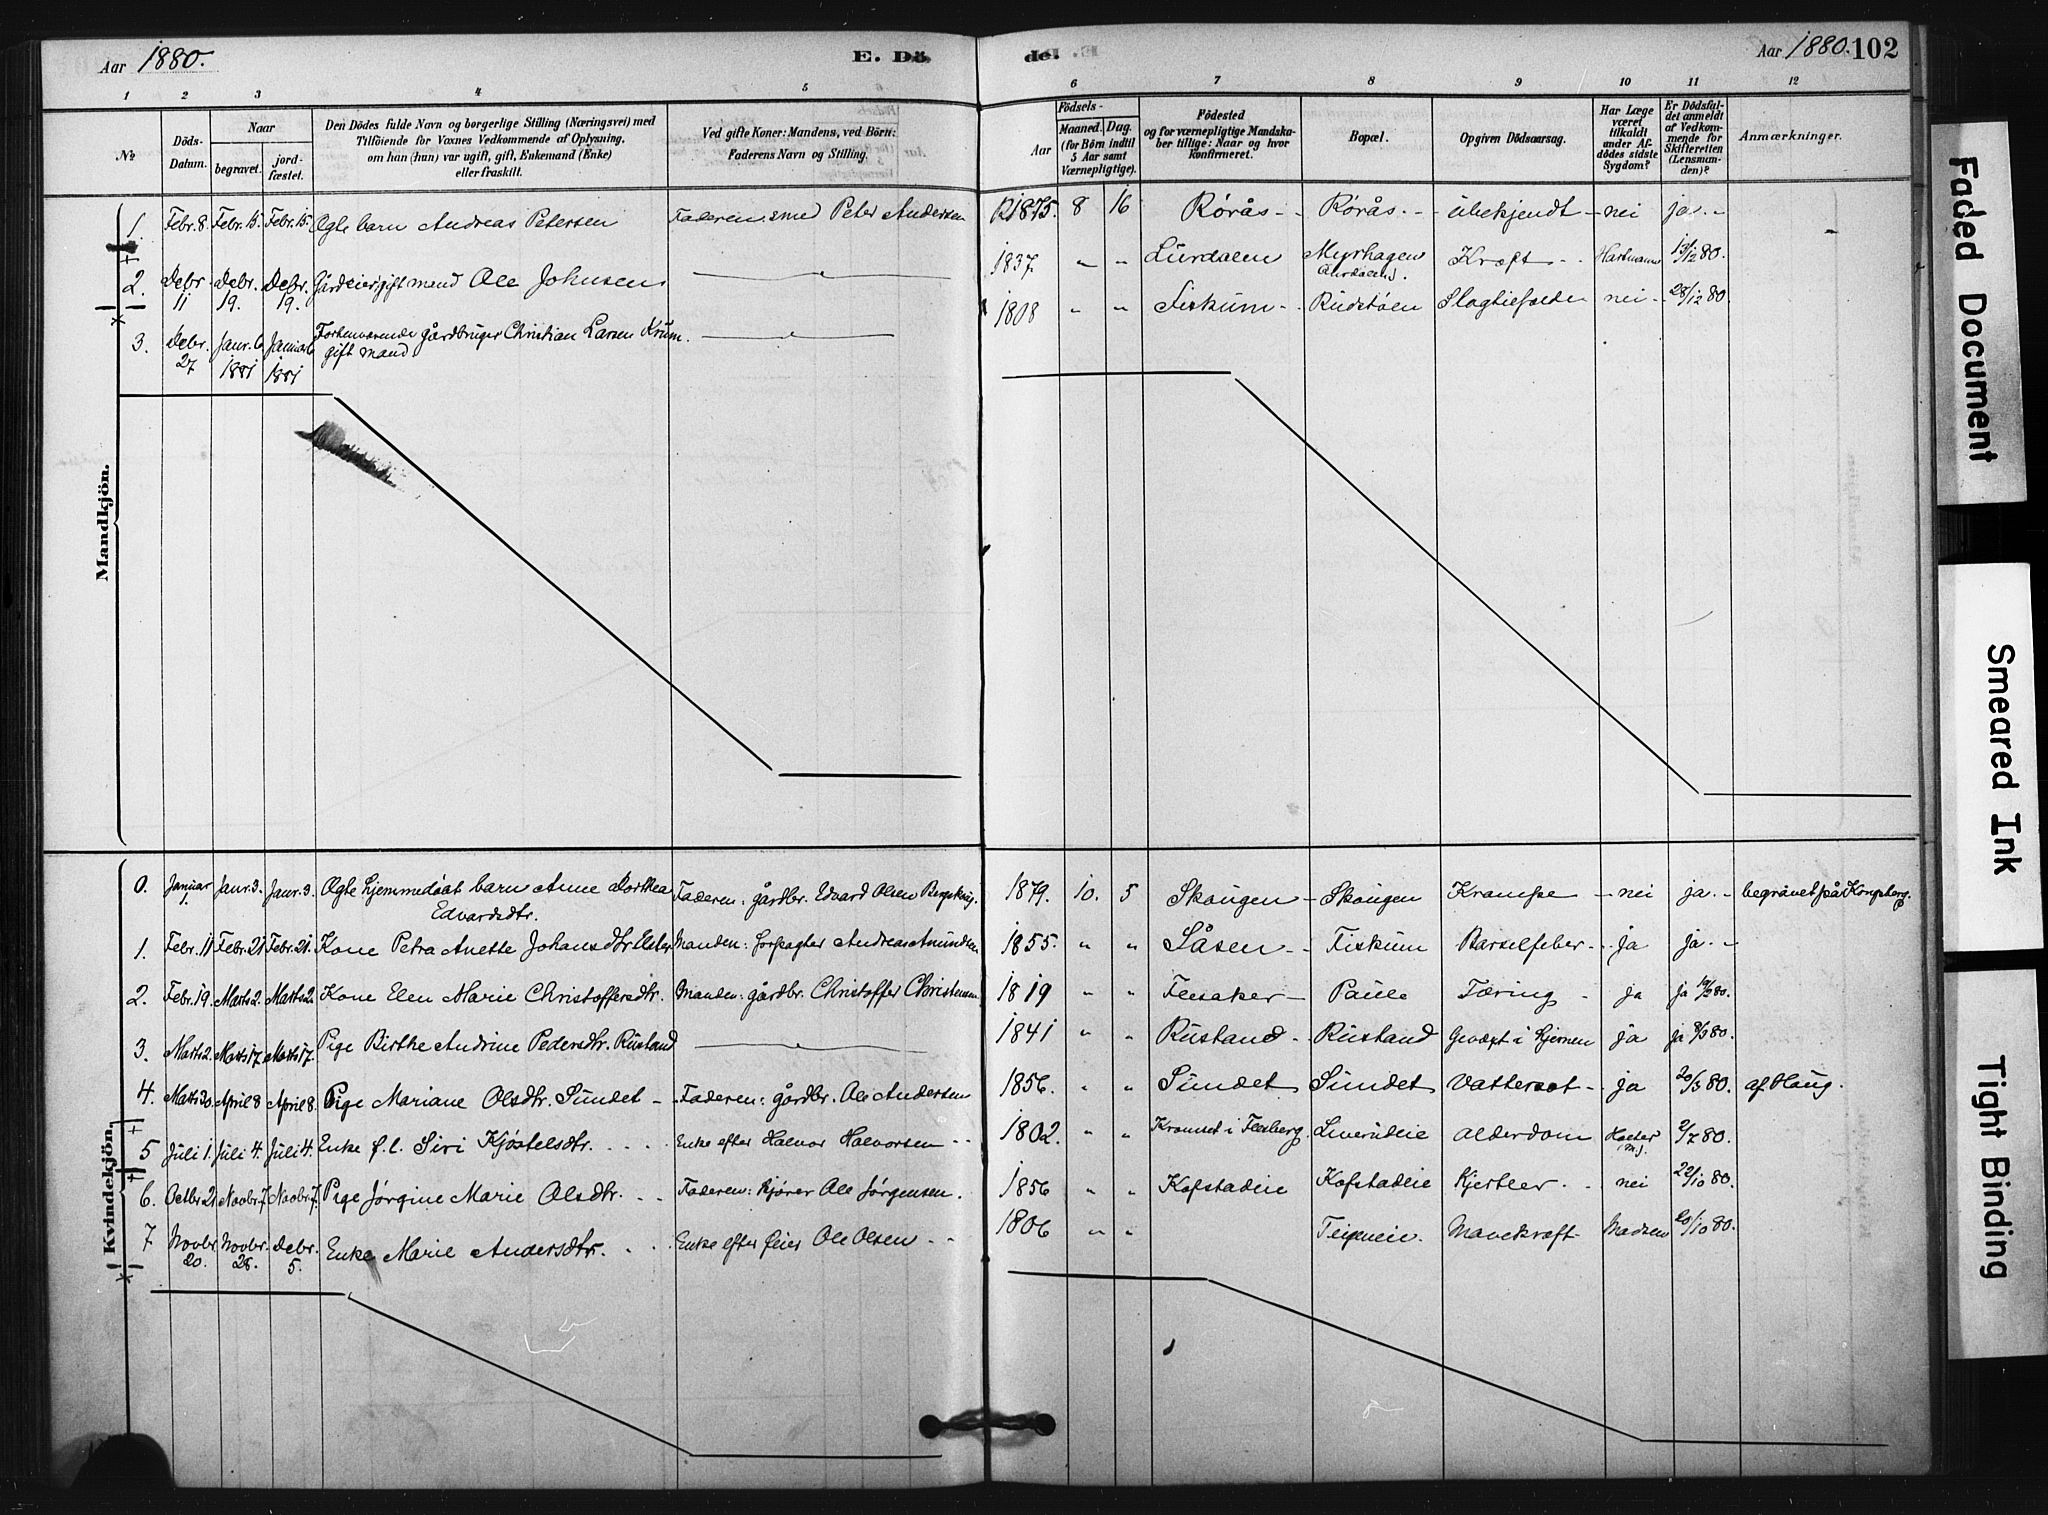 Aar 1880.
E. Dö
de.
Aar 1880. 102
1 2 3 4 5 6 7 8 9 10 11 12
№
Döds-Datum.
Naar
begravet.
jordfæstet.
Den Dödes fulde Navn og borgerlige Stilling (Næringsvei) med
Tilföiende for Voxnes Vedkommende af Oplysning,
om han (hun) var ugift, gift, Enkemand (Enke)
eller fraskilt.
Ved gifte Koner: Mandens, ved Börn:
Faderens Navn og Stilling.
Födsels-
Aar
Maaned. Dag.
(for Börn indtil
5 Aar samt
Værnepligtige).
Födested
og for værnepligtige Mandska-
ber tillige: Naar og hvor
konfirmeret.
Bopæl.
Opgiven Dödsaarsag.
Har Læge
været
tilkaldt
under Af-
dödes sidste
Sygdom?
Er Dödsfal-
det anmeldt
af Vedkom-
mende for
Skifteretten
(Lensman-
den)?
Anmærkninger.
Mandkjön.
1. Febr. 8. Febr. 15. Febr. 15. Ægte barn Andreas Petersen Faderen smed Peter Andersen 1875. 8 16 Rørås - Rørås - ubekjendt - nei ja. -
2. Debr. 11 Debr. 19. Debr. 19. Gårdeier, gift mand Ole Johnsen 1837. " " Lurdalen Myrhagen (Lurdalen). Kræft - Hartmann 13/12 80.
3. Debr. 27 Janr. 6 1881 Januar 6 1881 Forhenværende gårdbruger Christian Larsen Krum. gift mand 1808 " " Fiskum - Rudstøen Slagtilfælde nei - 28/12 80.
Kvindekjön.
0. Januar 1. Janr. 3. Janr. 3. Ægte hjemmedøbt barn Anne Dorthea Edvardsdtr. Faderen: gårdbr. Edvard Olsen 1879. 10. 5 Skougen - Skougen Krampe - nei ja. - begravet på Kongsberg.
1. Febr. 11 Febr. 21 Febr. 21. Kone Petra Anette Johansdtr. Manden: forpagter Andreas Amundsen 1855. " " Låsen - Fiskum Barselfeber - ja ja. -
2. Febr. 19. Marts 2. Marts 2. Kone Elen Marie Christoffersdtr. Manden: gårdbr. Christoffer Christensen 1819 " " Flesaker - Paule Tæring - ja ja 80.
3. Marts 2. Marts 17. Marts 17. Pige Birthe Andrine Pedersdtr. Rustand 1841 " " Rustand - Rustand Gvæxt i hjernen ja ja 80.
4. Marts 20. April 8 April 8. Pige Mariane Olsdtr. Sundet - Faderen: gårdbr. Ole Andersen 1856. " " Sundet Sundet Vattersot - ja 20/3 80. af Haug.
5 Juli 1. Juli 4. Juli 4. Enke f. l. Siri Kjøstelsdtr. Enke efter Halvor Halvorsen 1802. " " i Flesberg. Alderdom 2/7 80.
6. Octbr. 21. Novbr. 7. Novbr. 7. Pige Jørgine Marie Olsdtr. Faderen: kjører Ole Jørgensen. 1856 " " Kopstadeie Kopstadeie Kjertler nei 22/10 80.
7 Novbr. 20. Novbr. 28. Debr. 5. Enke Marie Andersdtr. Enke efter feier Ole Olsen 1806 " " Teigeneie. Mavekræft Madsen 20/10 80.
Faded Document
Smeared Ink
Tight Binding